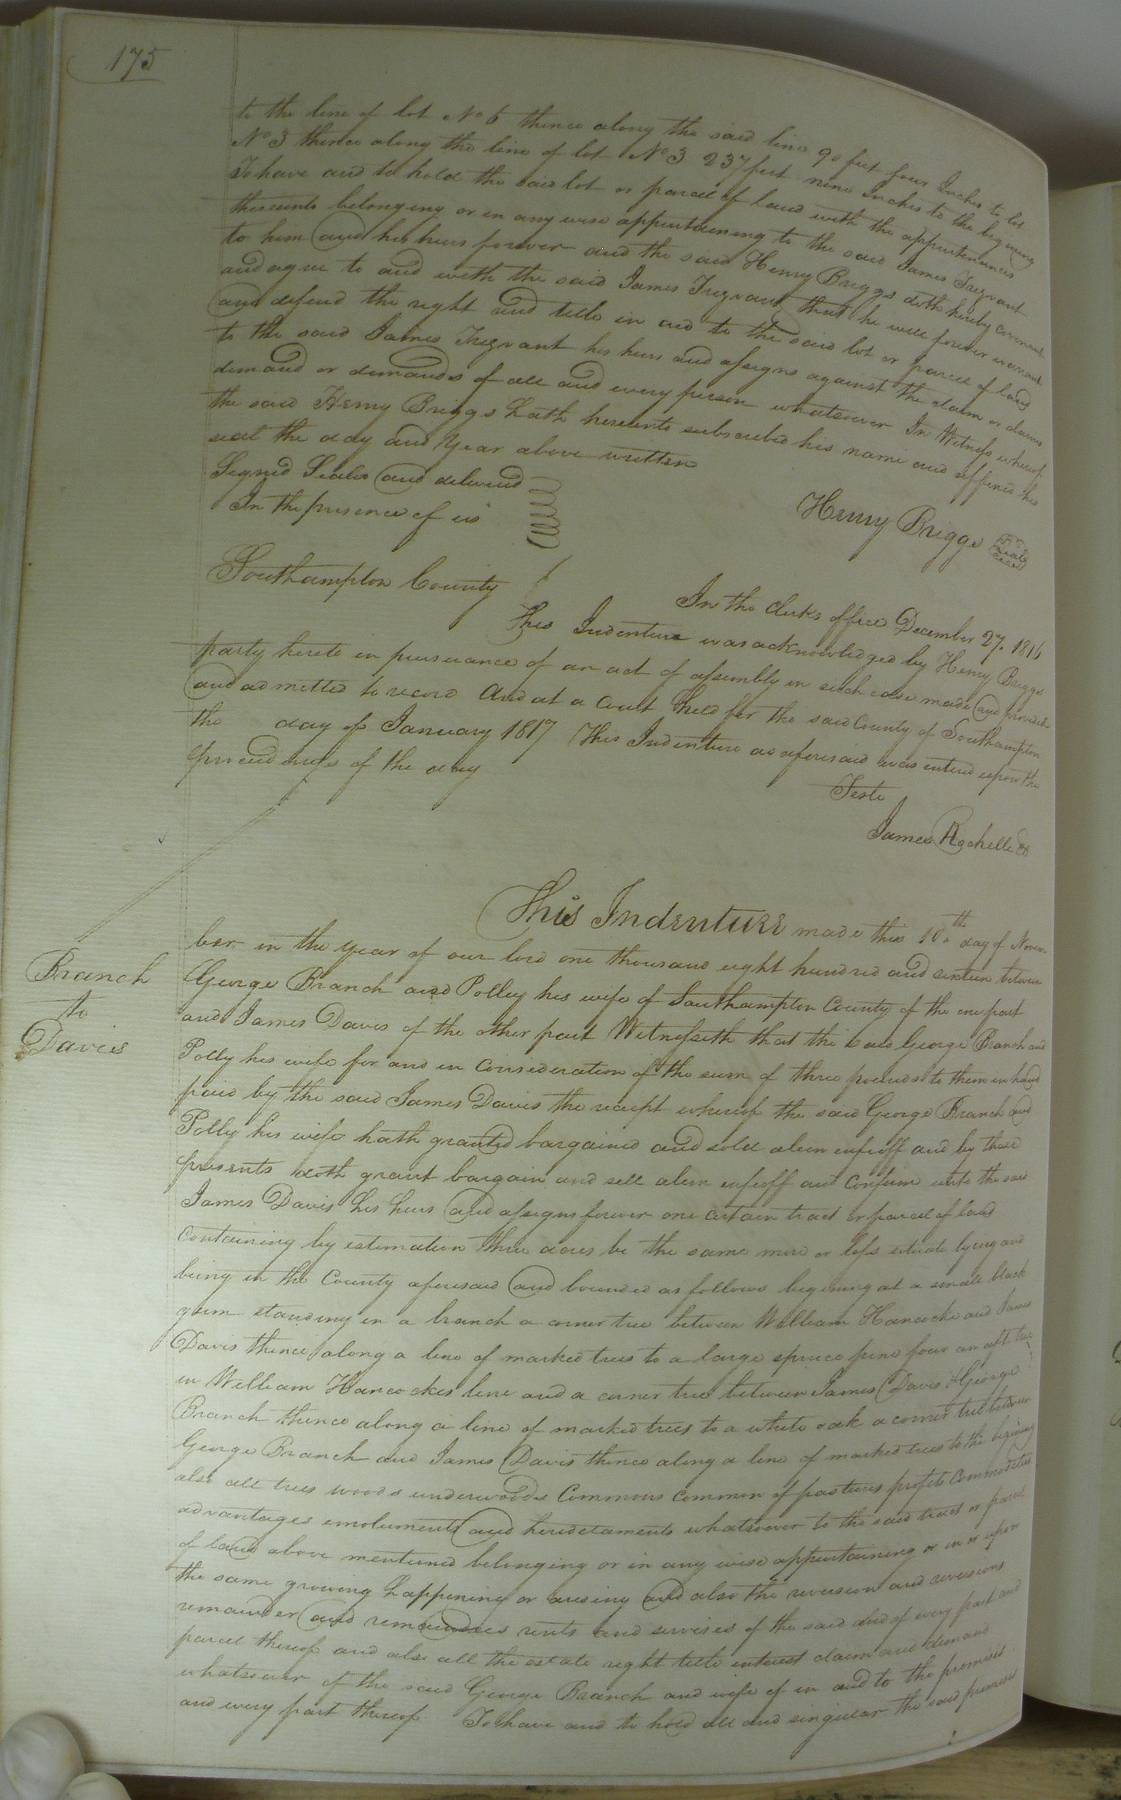 175
to the line of lot No 6 thence along the said line 90 feet four Inches to lot
No 3 thence along the line of lot No 3 237 feet nine Inches to the begining
To have and to hold the said lot or parcel of land with the appurtenances
thereunto belonging or in any wise appurtaining to the said James Trezvant
to him and his heirs forever and the said Henry Briggs doth hereby covenant
and agree to and with the said James Trezvant that he will forever warrant
and defend the right and title in and to the said lot or parcel of land
to the said James Trezvant his heirs and assigns against the claim or claims
demand or demands of all and every person whatsoever In Witness whereof
the said Henry Briggs hath hereunto subscribed his name and affixed his
seal the day and Year above written
Signed Sealed and delivered
In the presence of us
Henry Briggs Seal
Southampton County
In the Clerks office December 27. 1816
This Indenture was acknowledged by Henry Briggs
party hereto in pursuance of an act of assembly in such case made and provided
and admitted to record And at a Court held for the said County of Southampton
the day of January 1817 This Indenture as aforesaid was entered upon the
proceedings of the day
Teste
James Rochelle
Branch
to
Davis
This Indenture made this 10th day of Novem
ber in the year of our lord one thousand eight hundred and sixteen between
George Branch and Polley his wife of Southampton County of the one part
and James Davis of the other part Witnesseth that the said George Branch and
Polly his wife for and in Consideration of the sum of three pounds to them in hand
paid by the said James Davis the receipt whereof the said George Branch and
Polly his wife hath granted bargained and sold alien enfeoff and by these
presents doth grant bargain and sell alien enfeoff and Confirm unto the said
James Davis his heirs and assigns forever one certain tract or parcel of land
Containing by estimation three acres be the same more or less situate lying and
being in the County aforesaid and bounded as follows begining at a small black
gum standing in a branch a corner tree between William Hancocke and James
Davis thence along a line of marked trees to a large spruce pine
in William Hancockes line and a corner tree between James Davis & George
Branch thence along a line of marked trees to a white oak a corner tree between
George Branch and James Davis thence along a line of marked trees to the begining
also all trees woods underwoods Commons common of pastures profits Commodities
advantages emoluments and heredetaments whatsoever to the said tract or parcel
of land above mentioned belonging or in any wise appurtaining or in or upon
the same growing happening or arising and also the reversion and reversions
remainder and remainders rents and services of the said and of every part and
parcel thereof and also all the estate right title interest claim and demand
whatsoever of the said George Branch and wife of in and to the premises
and every part thereof To have and to hold all and singular the said premises